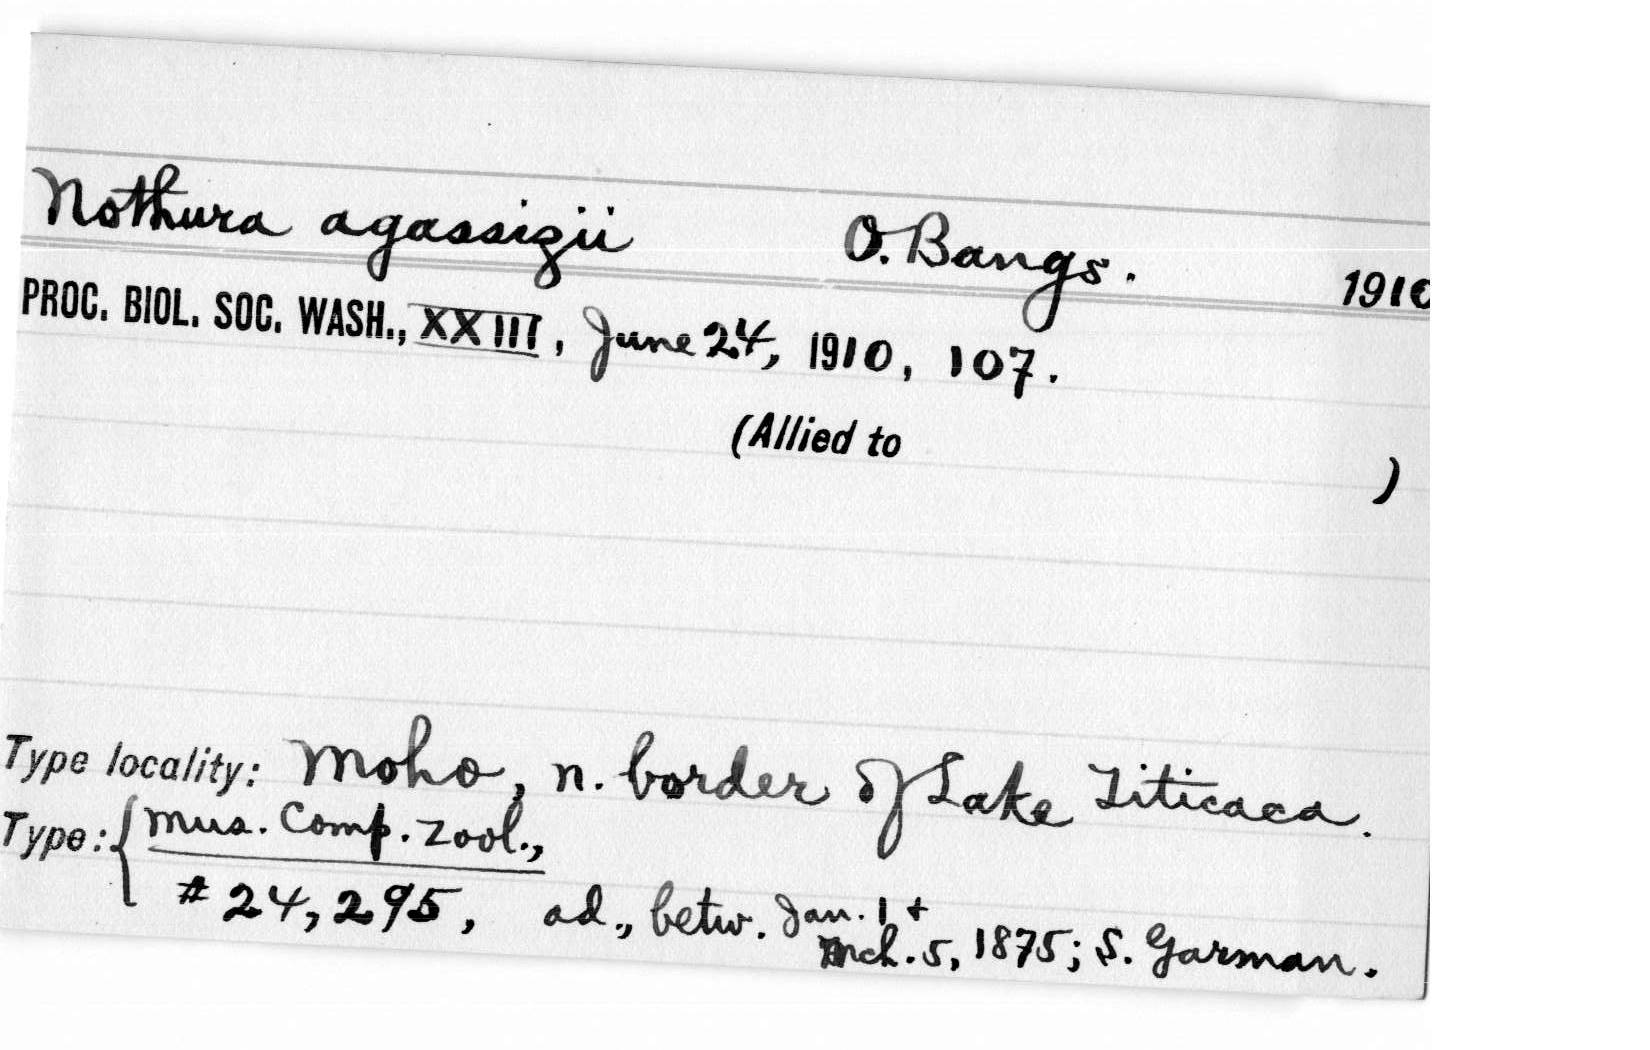 Nothura agassizii O. Bangs. 1910
PROC. BIOL. SOC. WASH., XXIII, June 24, 1910, 107.
(Allied to )
Type locality: Moho, n. border of Lake Titicaca.
Type: { Mus. Comp. Zool.,
# 24,295, ad., betw. Jan. 1 +
Mch. 5, 1875; S. Garman.